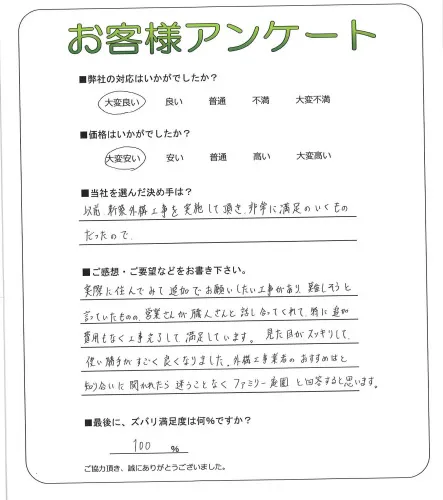 お客様アンケート
■弊社の対応はいかがでしたか?
大変良い 良い 普通 不満 大変不満
■価格はいかがでしたか?
大変安い 安い 普通 高い 大変高い
■当社を選んだ決め手は?
以前 新築外構工事を実施して頂き、非常に満足のいくもの
だったので。
■ご感想・ご要望などをお書き下さい。
実際に住んでみて追加でお願いしたい工事があり 難しそうと
言っていたものの、営業さんが職人さんと話し合ってくれて、特に追加
費用もなく工事えるして満足しています。見た目がスッキリして、
使い勝手がすごく良くなりました。外構工事業者のおすすめはと
知り合いに聞かれたら迷うことなくファミリー庭園と回答すると思います。
■最後に、ズバリ満足度は何%ですか?
100 %
ご協力頂き、誠にありがとうございました。